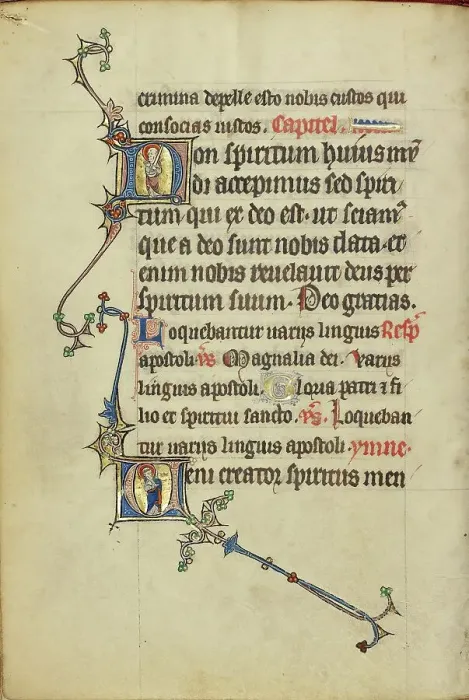 crimina depelle esto nobis custos qui
consocias iustos. Capitel.
Non spiritum huius mū
di accepimus sed spiri
tum qui ex deo est. ut sciam⁹
que a deo sunt nobis data. et
enim nobis reuelauit deus per
spiritum suum. Deo gratias.
Loquebantur uarijs linguis Resp̄
apostoli. v̄s Magnalia dei. varijs
linguis apostoli. Gloria patri ⁊ fi
lio et spiritui sancto. v̄s. Loqueban
tur uarijs linguis apostoli. ymne.
Ueni creator spiritus men